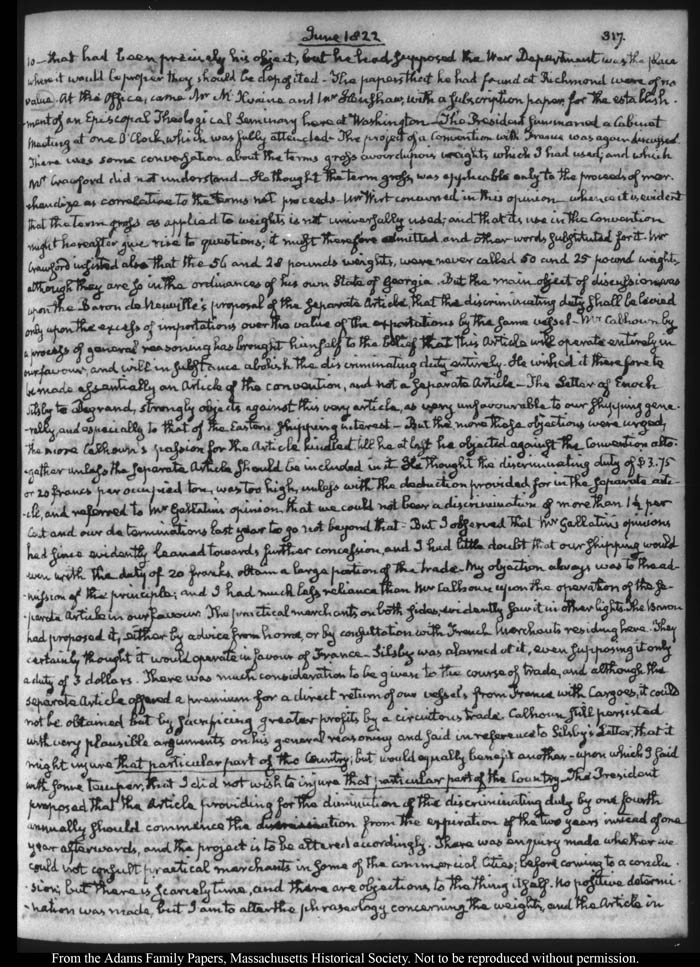 June 1822 317.
10 – that had been precisely his object, but he had supposed the War Department was the place
where it would be proper they should be deposited – The papers that he had found at Richmond were of no
value. At the Office, came Mr McIlvaine and Mr Hawley with a subscription paper, for the establish-
-ment of an Episcopal Theological Seminary here at Washington – The President summoned a Cabinet
Meeting at one O'Clock, which was fully attended – The project of a Convention with France was again discussed.
There was some conversation about the terms gross avoirdupois weight, which I had used, and which
Mr Crawford did not understand – He thought the term gross, was applicable only to the proceeds of mer-
chandize as correlative to the terms net proceeds. Mr Wirt concurred in this opinion – whence it is evident
that the term gross as applied to weight, is not universally used; and that its use in the Convention
might hereafter give rise to questions; it must therefore be omitted and other words substituted for it. Mr
Crawford insisted also that the 56 and 28 pounds weights, were never called 50 and 25 pound weights,
although they are so in the ordinances of his own State of Georgia. But the main object of discussion was
upon the Baron de Neuville's proposal of the separate Article, that the discriminating duty shall be levied
only upon the excess of importations over the value of the exportations by the same vessel – Mr Calhoun by
a process of general reasoning has brought himself to the belief that this Article will operate entirely in
our favour, and will in substance abolish the discriminating duty entirely. He wished it therefore to
be made essentially an Article of the convention, and not a separate Article – The Letter of Enoch
Silsby to Degrand, strongly objects against this very article, as very unfavourable to our shipping gene-
-rally, and especially to that of the Eastern shipping interest – But the more these objections were urged,
the more Calhoun's passion for the Article kindled till he at last he objected against the Convention alto-
-gether unless the separate Article should be included in it. He thought the discriminating duty of $3.75
or 20 francs per occupied ton, was too high, unless with the deduction provided for in the separate arti-
cle, and referred to Mr Gallatin's opinion, that we could not bear a discrimination of more than 1½ per
Cent and our determinations last year to go not beyond that – But I observed that Mr Gallatin's opinions
had since evidently leaned towards further concession, and I had little doubt that our shipping would
even with the duty of 20 franks, obtain a large portion of the trade. My objection always was to the ad-
-mission of the principle; and I had much less reliance than Mr Calhoun upon the operation of the se-
-parate Article in our favour. The practical merchants on both sides, evidently saw it in other lights. The Baron
had proposed it, either by advice from home, or by consultation with French Merchants residing here. They
certainly thought it would operate in favour of France – Silsby was alarmed at it, even supposing it only
a duty of 3 dollars. There was much consideration to be given to the course of trade, and although the
separate Article offered a premium for a direct return of our vessels from France with Cargoes, it could
not be obtained but by sacrificing greater profits by a circuitous trade. Calhoun still persisted
with very plausible arguments on his general reasoning and said in reference to Silsby's Letter, that it
might injure that particular part of the Country, but would equally benefit another – upon which I said
with some temper, that I did not wish to injure that particular part of the Country. The President
proposed that the Article providing for the diminution of the discriminating duty by one fourth
annually should commence the diminution from the expiration of the two years instead of one
year afterwards, and the project is to be altered accordingly. There was enquiry made whether we
could not consult practical merchants in some of the commercial Cities; before coming to a conclu-
-sion; but there is scarcely time, and there are objections to the thing itself. No positive determi-
-nation was made, but I am to alter the phraseology concerning the weights, and the Article in
From the Adams Family Papers, Massachusetts Historical Society. Not to be reproduced without permission.